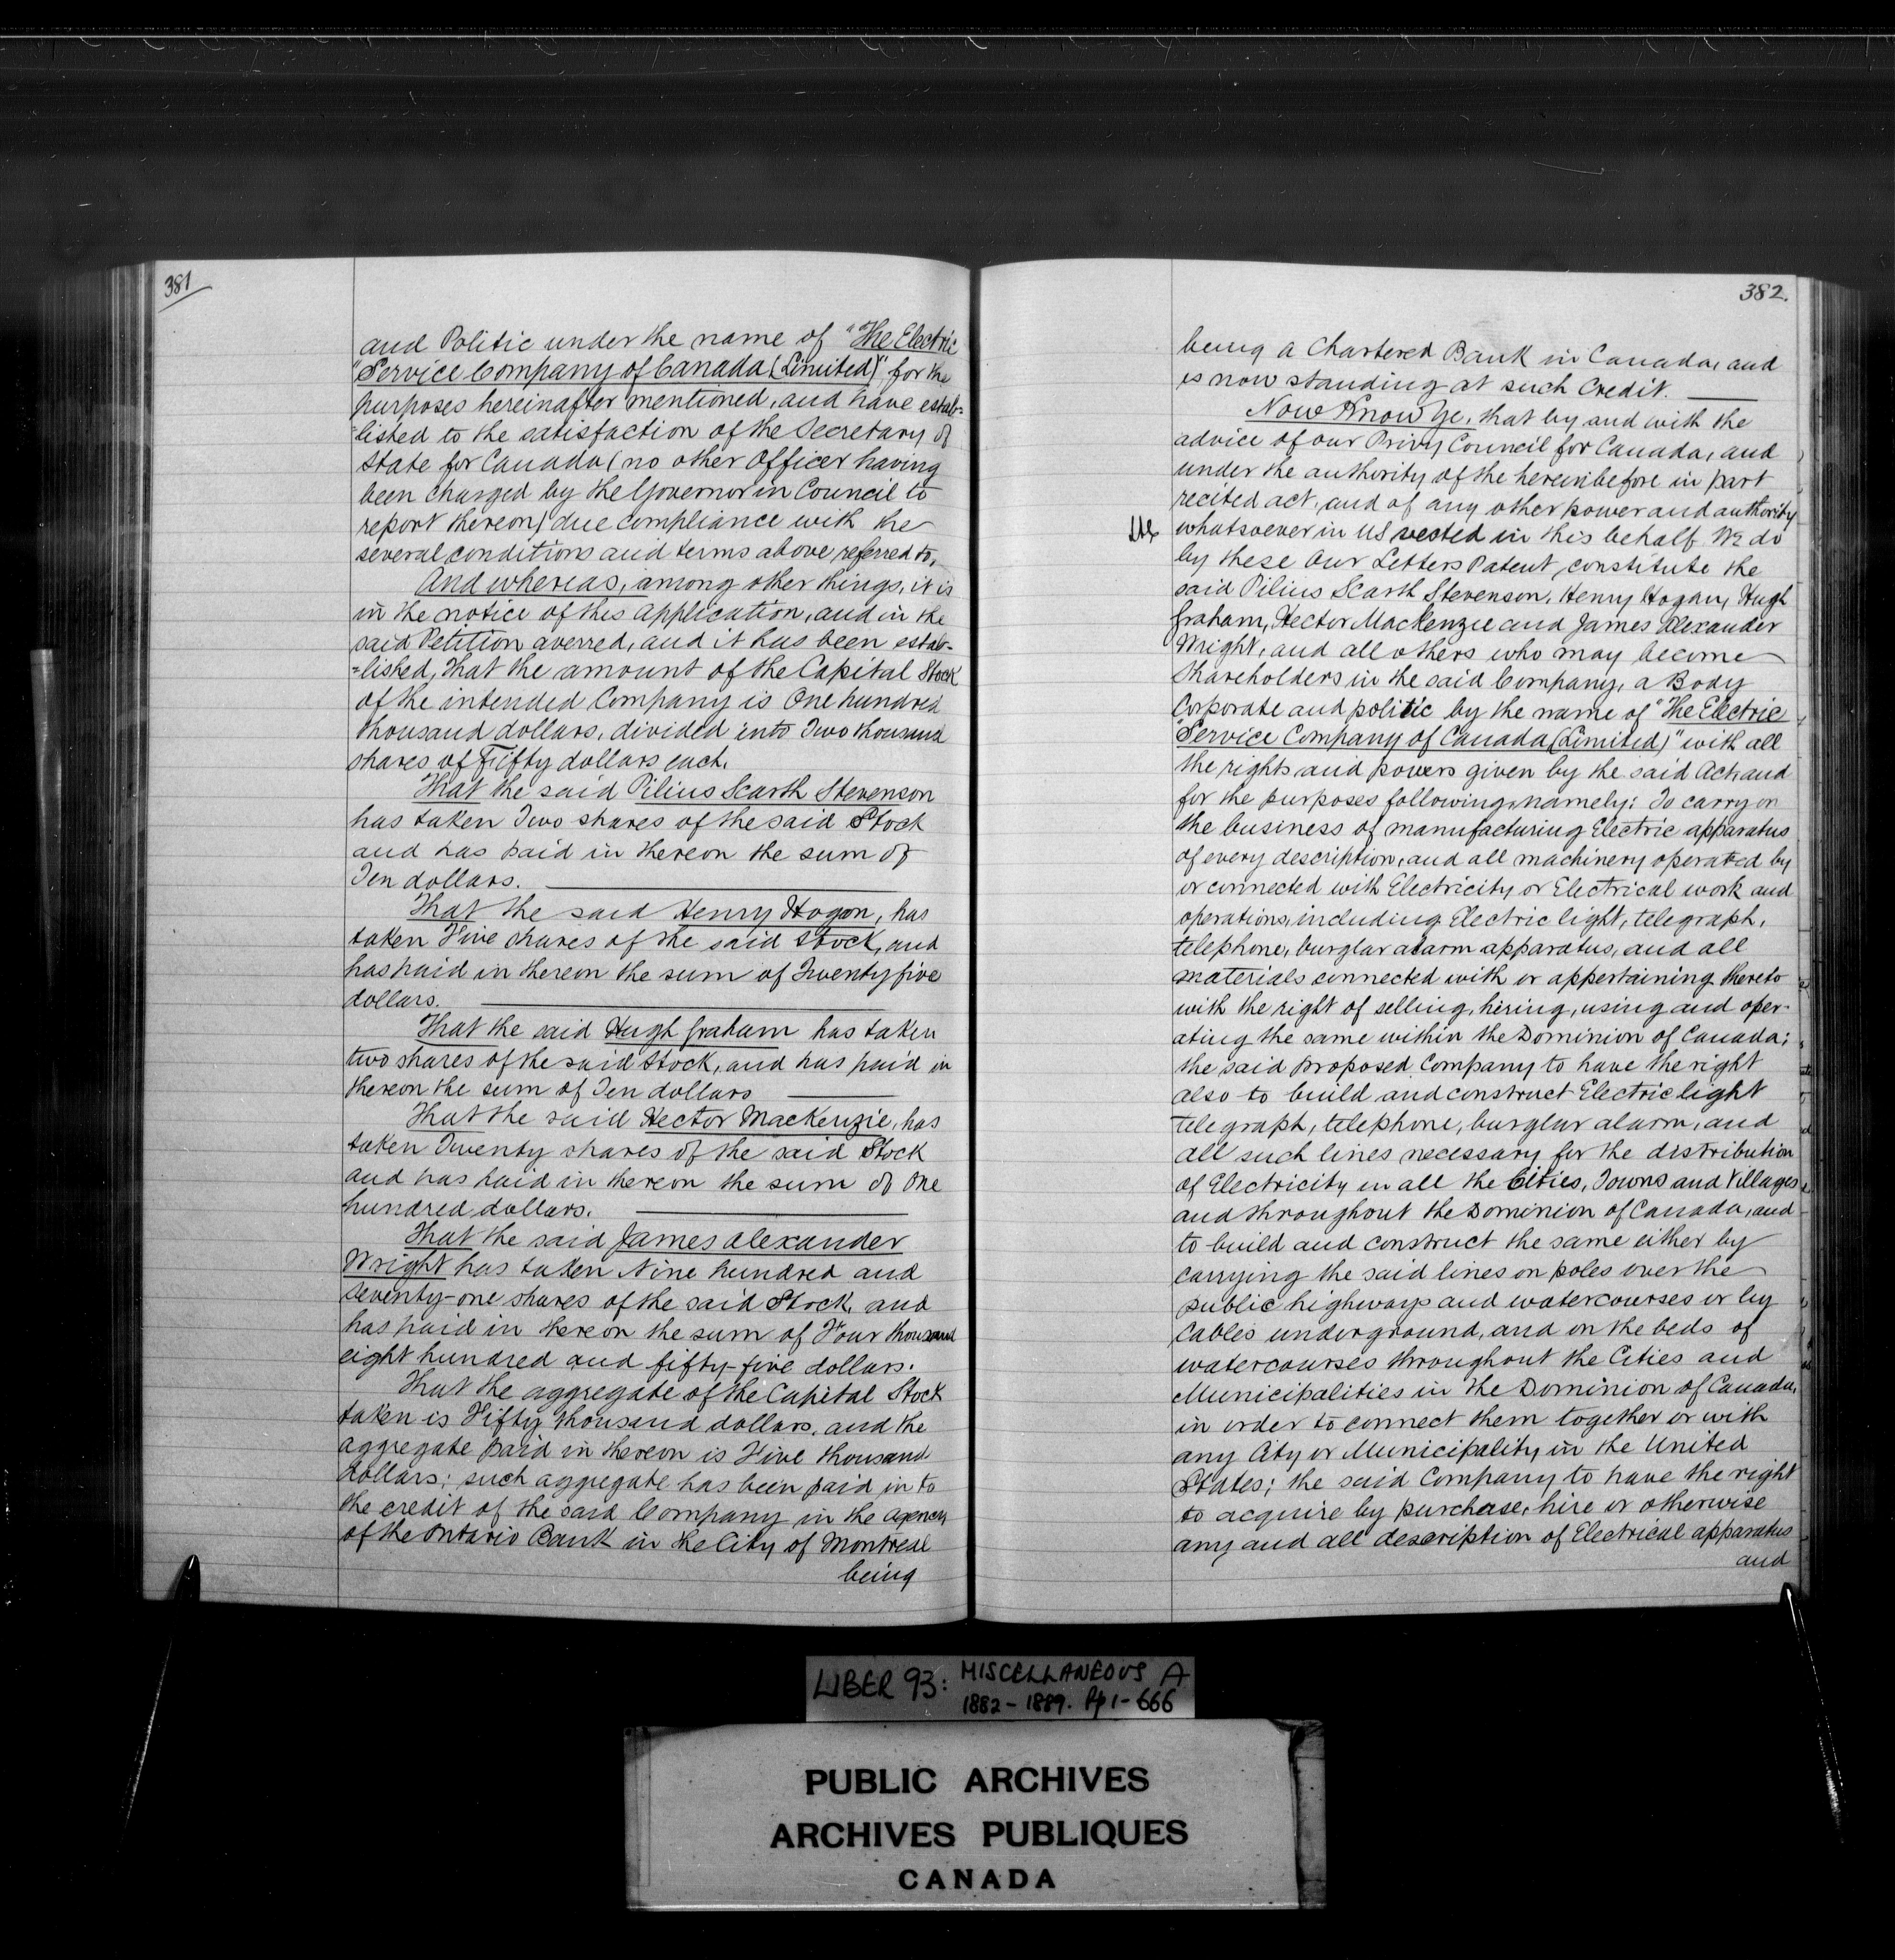 381
and Politic under the name of "The Electric
"Service Company of Canada (Limited)" for the
purposes hereinafter mentioned, and have estab=
=lished to the satisfaction of the Secretary of
State for Canada (no other Officer having
been charged by the Governor in Council to
report thereon) due compliance with the
several conditions and terms above referred to,
And whereas, among other things, it is
in the notice of this application, and in the
said Petition averred, and it has been estab-
=lished, that the amount of the Capital Stock
of the intended Company is One hundred
thousand dollars, divided into Two thousand
shares of Fifty dollars each.
That the said Pilius Scarth Stevenson
has taken Two shares of the said Stock
and has paid in thereon the sum of
Ten dollars.
That the said Henry Hogan, has
taken Five shares of the said Stock, and
has paid in thereon the sum of Twenty five
dollars.
That the said Hugh Graham has taken
two shares of the said Stock, and has paid in
thereon the sum of Ten dollars
That the said Hector MacKenzie, has
taken Twenty shares of the said Stock
and has paid in thereon the sum of One
hundred dollars.
That the said James Alexander
Wright has taken Nine hundred and
seventy-one shares of the said Stock, and
has paid in thereon the sum of Four thousand
eight hundred and fifty-five dollars.
That the aggregate of the Capital Stock
taken is Fifty thousand dollars, and the
aggregate paid in thereon is Five thousand
dollars; such aggregate has been paid in to
the credit of the said Company in the agency
of the Ontario Bank in the City of Montreal
being
382.
being a Chartered Bank in Canada, and
is now standing at such Credit.
Now Know Ye, that by and with the
advice of our Privy Council for Canada, and
under the authority of the hereinbefore in part
recited act, and of any other power and authority
whatsoever in US vested in this behalf We do
by these Our Letters Patent, constitute the
said Pilius Scarth Stevenson, Henry Hogan, Hugh
Graham, Hector MacKenzie and James Alexander
Wright, and all others who may become
Shareholders in the said Company, a Body
Corporate and politic by the name of "The Electric
"Service Company of Canada (Limited)" with all
the rights and powers given by the said Act, and
for the purposes following, namely: To carry on
the business of manufacturing Electric apparatus
of every description, and all machinery operated by
or connected with Electricity or Electrical work and
operations, including Electric light, telegraph,
telephone, burglar alarm apparatus, and all
materials connected with or appertaining thereto
with the right of selling, hiring, using and oper-
ating the same within the Dominion of Canada;
the said proposed Company to have the right
also to build and construct Electric light
telegraph, telephone, burglar alarm, and
all such lines necessary for the distribution
of Electricity in all the Cities, Towns and Villages
and throughout the Dominion of Canada, and
to build and construct the same either by
carrying the said lines on poles over the
public highways and watercourses or by
Cables underground, and on the beds of
watercourses throughout the Cities and
Municipalities in the Dominion of Canada,
in order to connect them together or with
any City or Municipality in the United
States; the said Company to have the right
to acquire by purchase, hire or otherwise
any and all description of Electrical apparatus
and
LIBER 93: MISCELLANEOUS A
1882-1889. Pp 1-666
PUBLIC ARCHIVES
ARCHIVES PUBLIQUES
CANADA